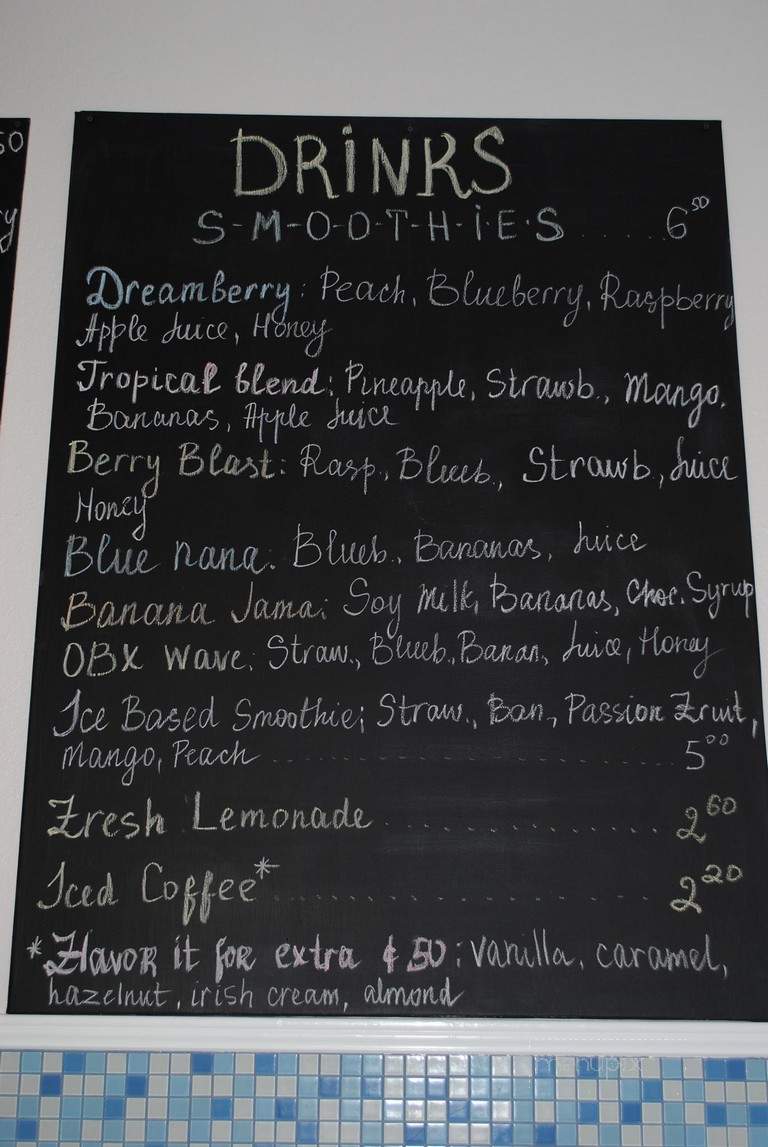 50
ry
DRiNKS
S-M-O-O-T-H-i-E-S ...... 6 50
Dreamberry: Peach, Blueberry, Raspberry
Apple Juice, Honey
Tropical blend: Pineapple, Strawb., Mango,
Bananas, Apple Juice
Berry Blast: Rasp., Blueb., Strawb., Juice
Honey
Blue nana: Blueb., Bananas, Juice
Banana Jama: Soy Milk, Bananas, Choc. Syrup
OBX Wave: Straw., Blueb., Banan., Juice, Honey
Ice Based Smoothie: Straw., Ban., Passion Fruit,
Mango, Peach ........ 5 00
Fresh Lemonade ........ 2 60
Iced Coffee* ........ 2 20
*Flavor it for extra ¢ 50: vanilla, caramel,
hazelnut, irish cream, almond
menupix